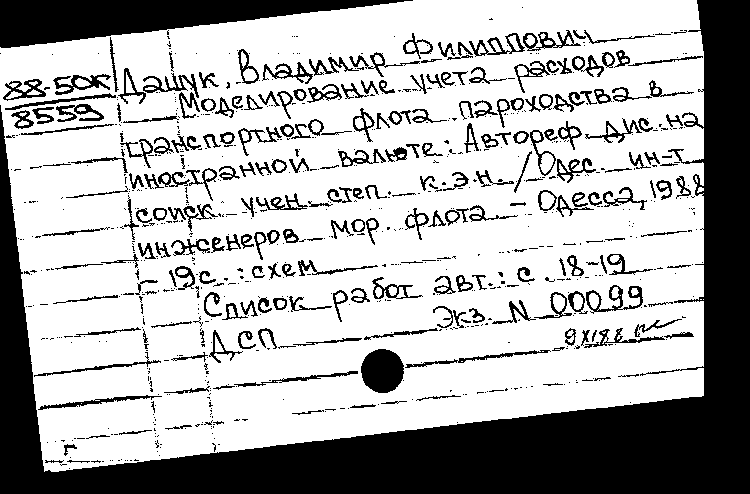 88-50к
8559
Дащук, Владимир Филиппович
Моделирование учета расходов
транспортного флота пароходства в
иностранной валюте: Автореф. дис. на
соиск. учен. степ. к.э.н. / Одес. ин-т
инженеров мор. флота. – Одесса, 1988
– 19 с. : схем
Список работ авт.: с. 18-19
ДСП Экз. N 00099